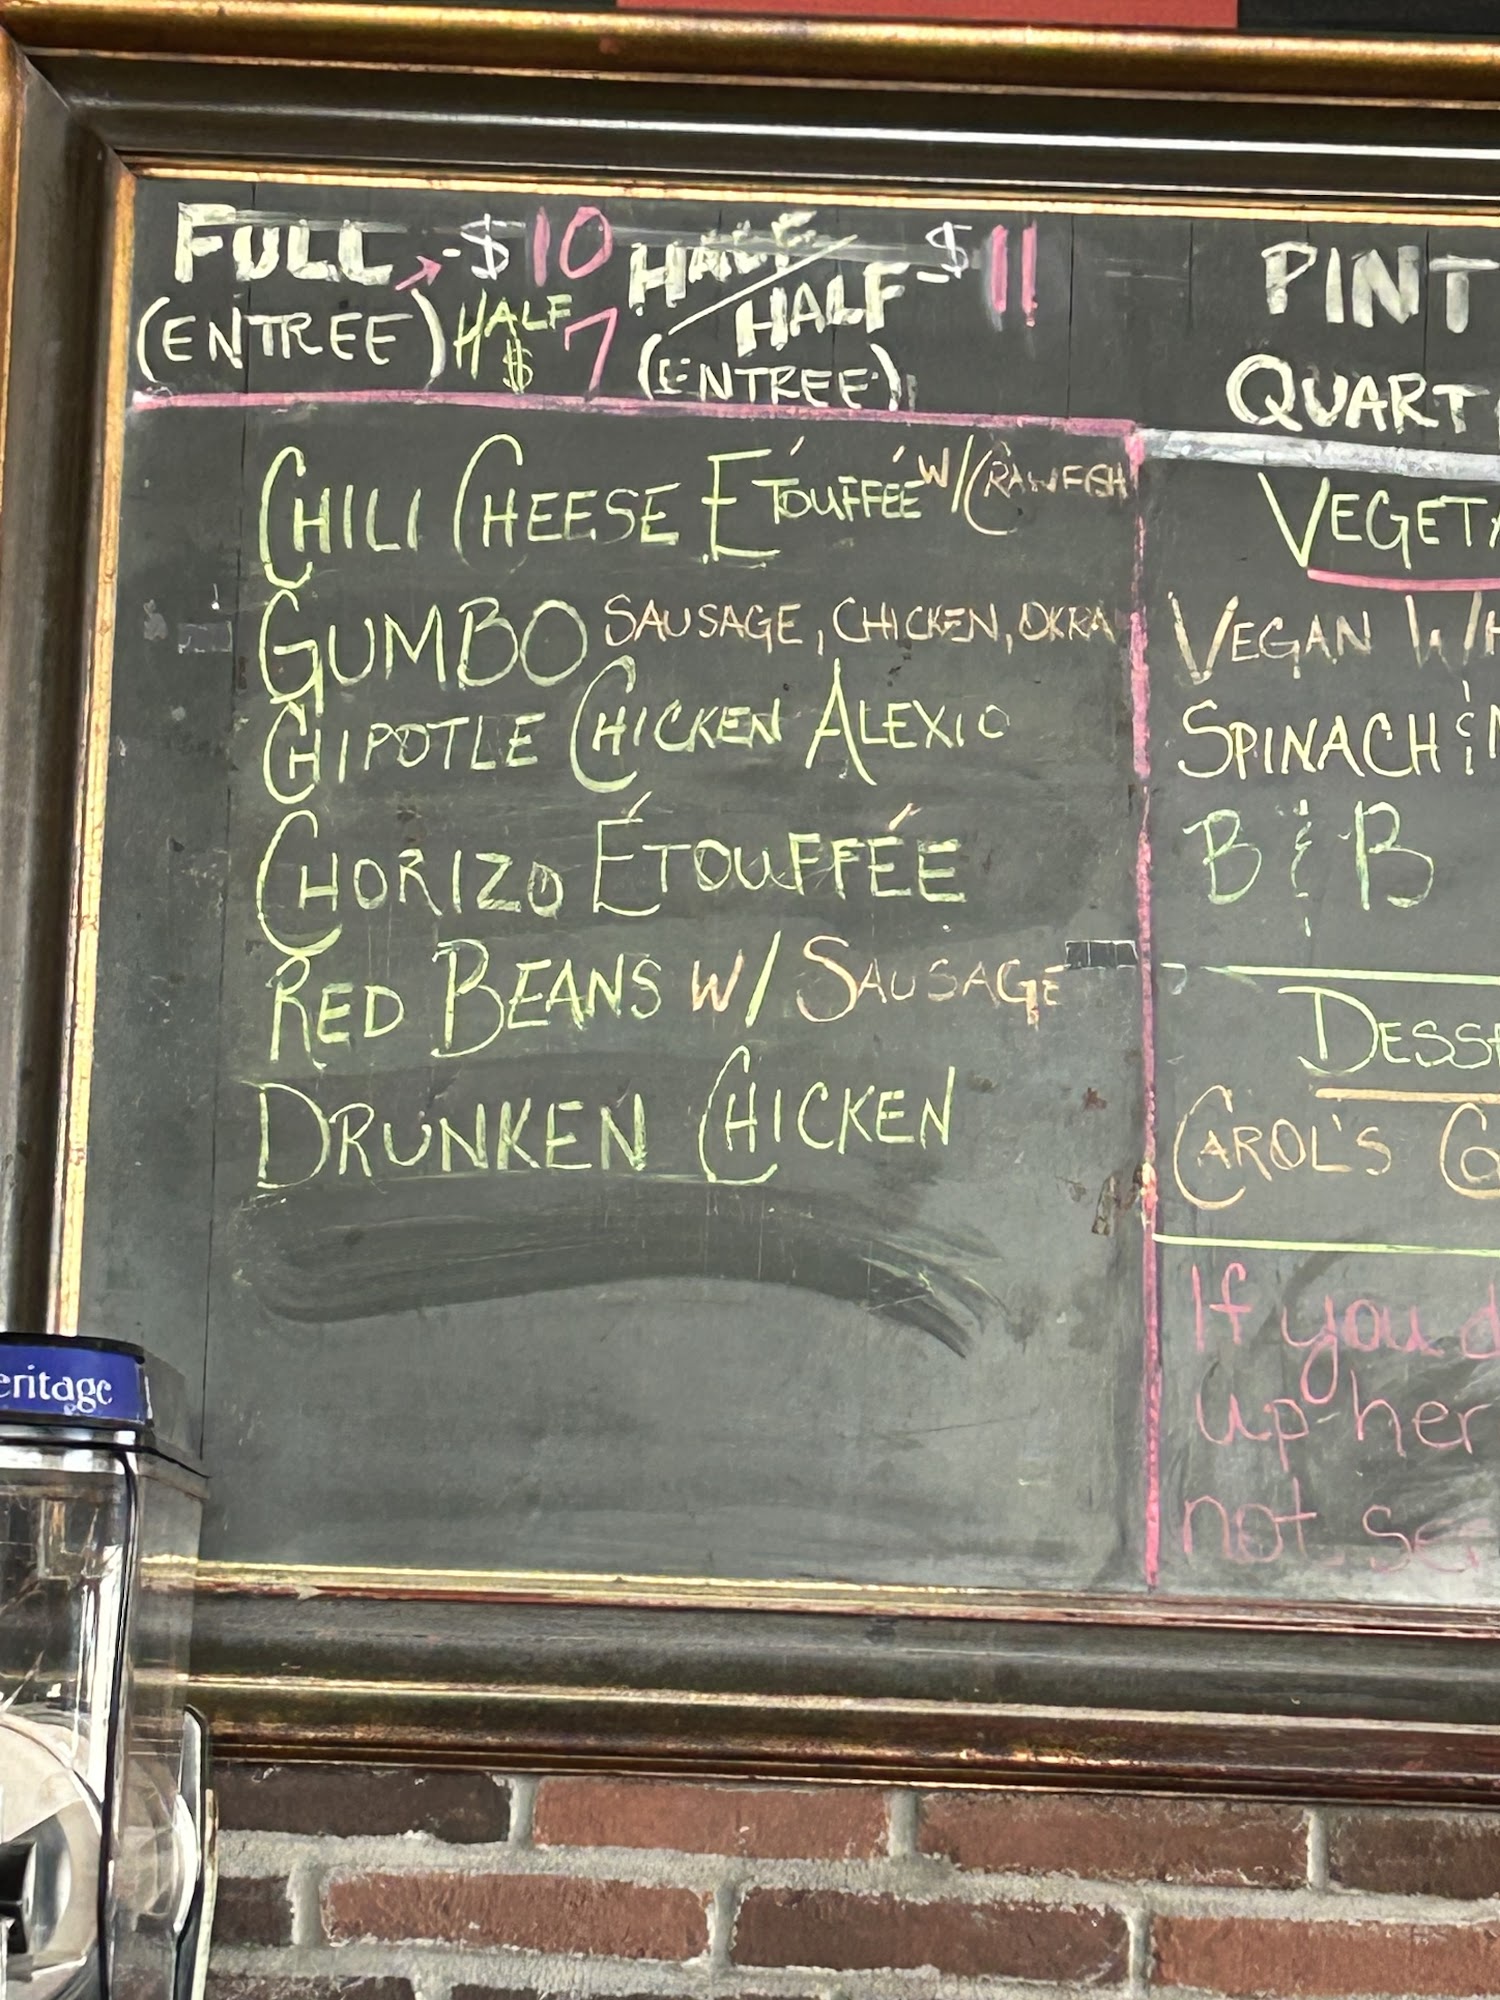 FULL -$10 HALF/HALF-$11
(ENTREE) HALF $7 (ENTREE)
CHILI CHEESE ÉTOUFFÉE W/CRAWFISH
GUMBO SAUSAGE, CHICKEN, OKRA
CHIPOTLE CHICKEN ALEXIO
CHORIZO ÉTOUFFÉE
RED BEANS W/ SAUSAGE
DRUNKEN CHICKEN
PINT
QUART
VEGETA
VEGAN W/
SPINACH &
B & B
DESSE
CAROL'S
If you d
up her
not se
eritage